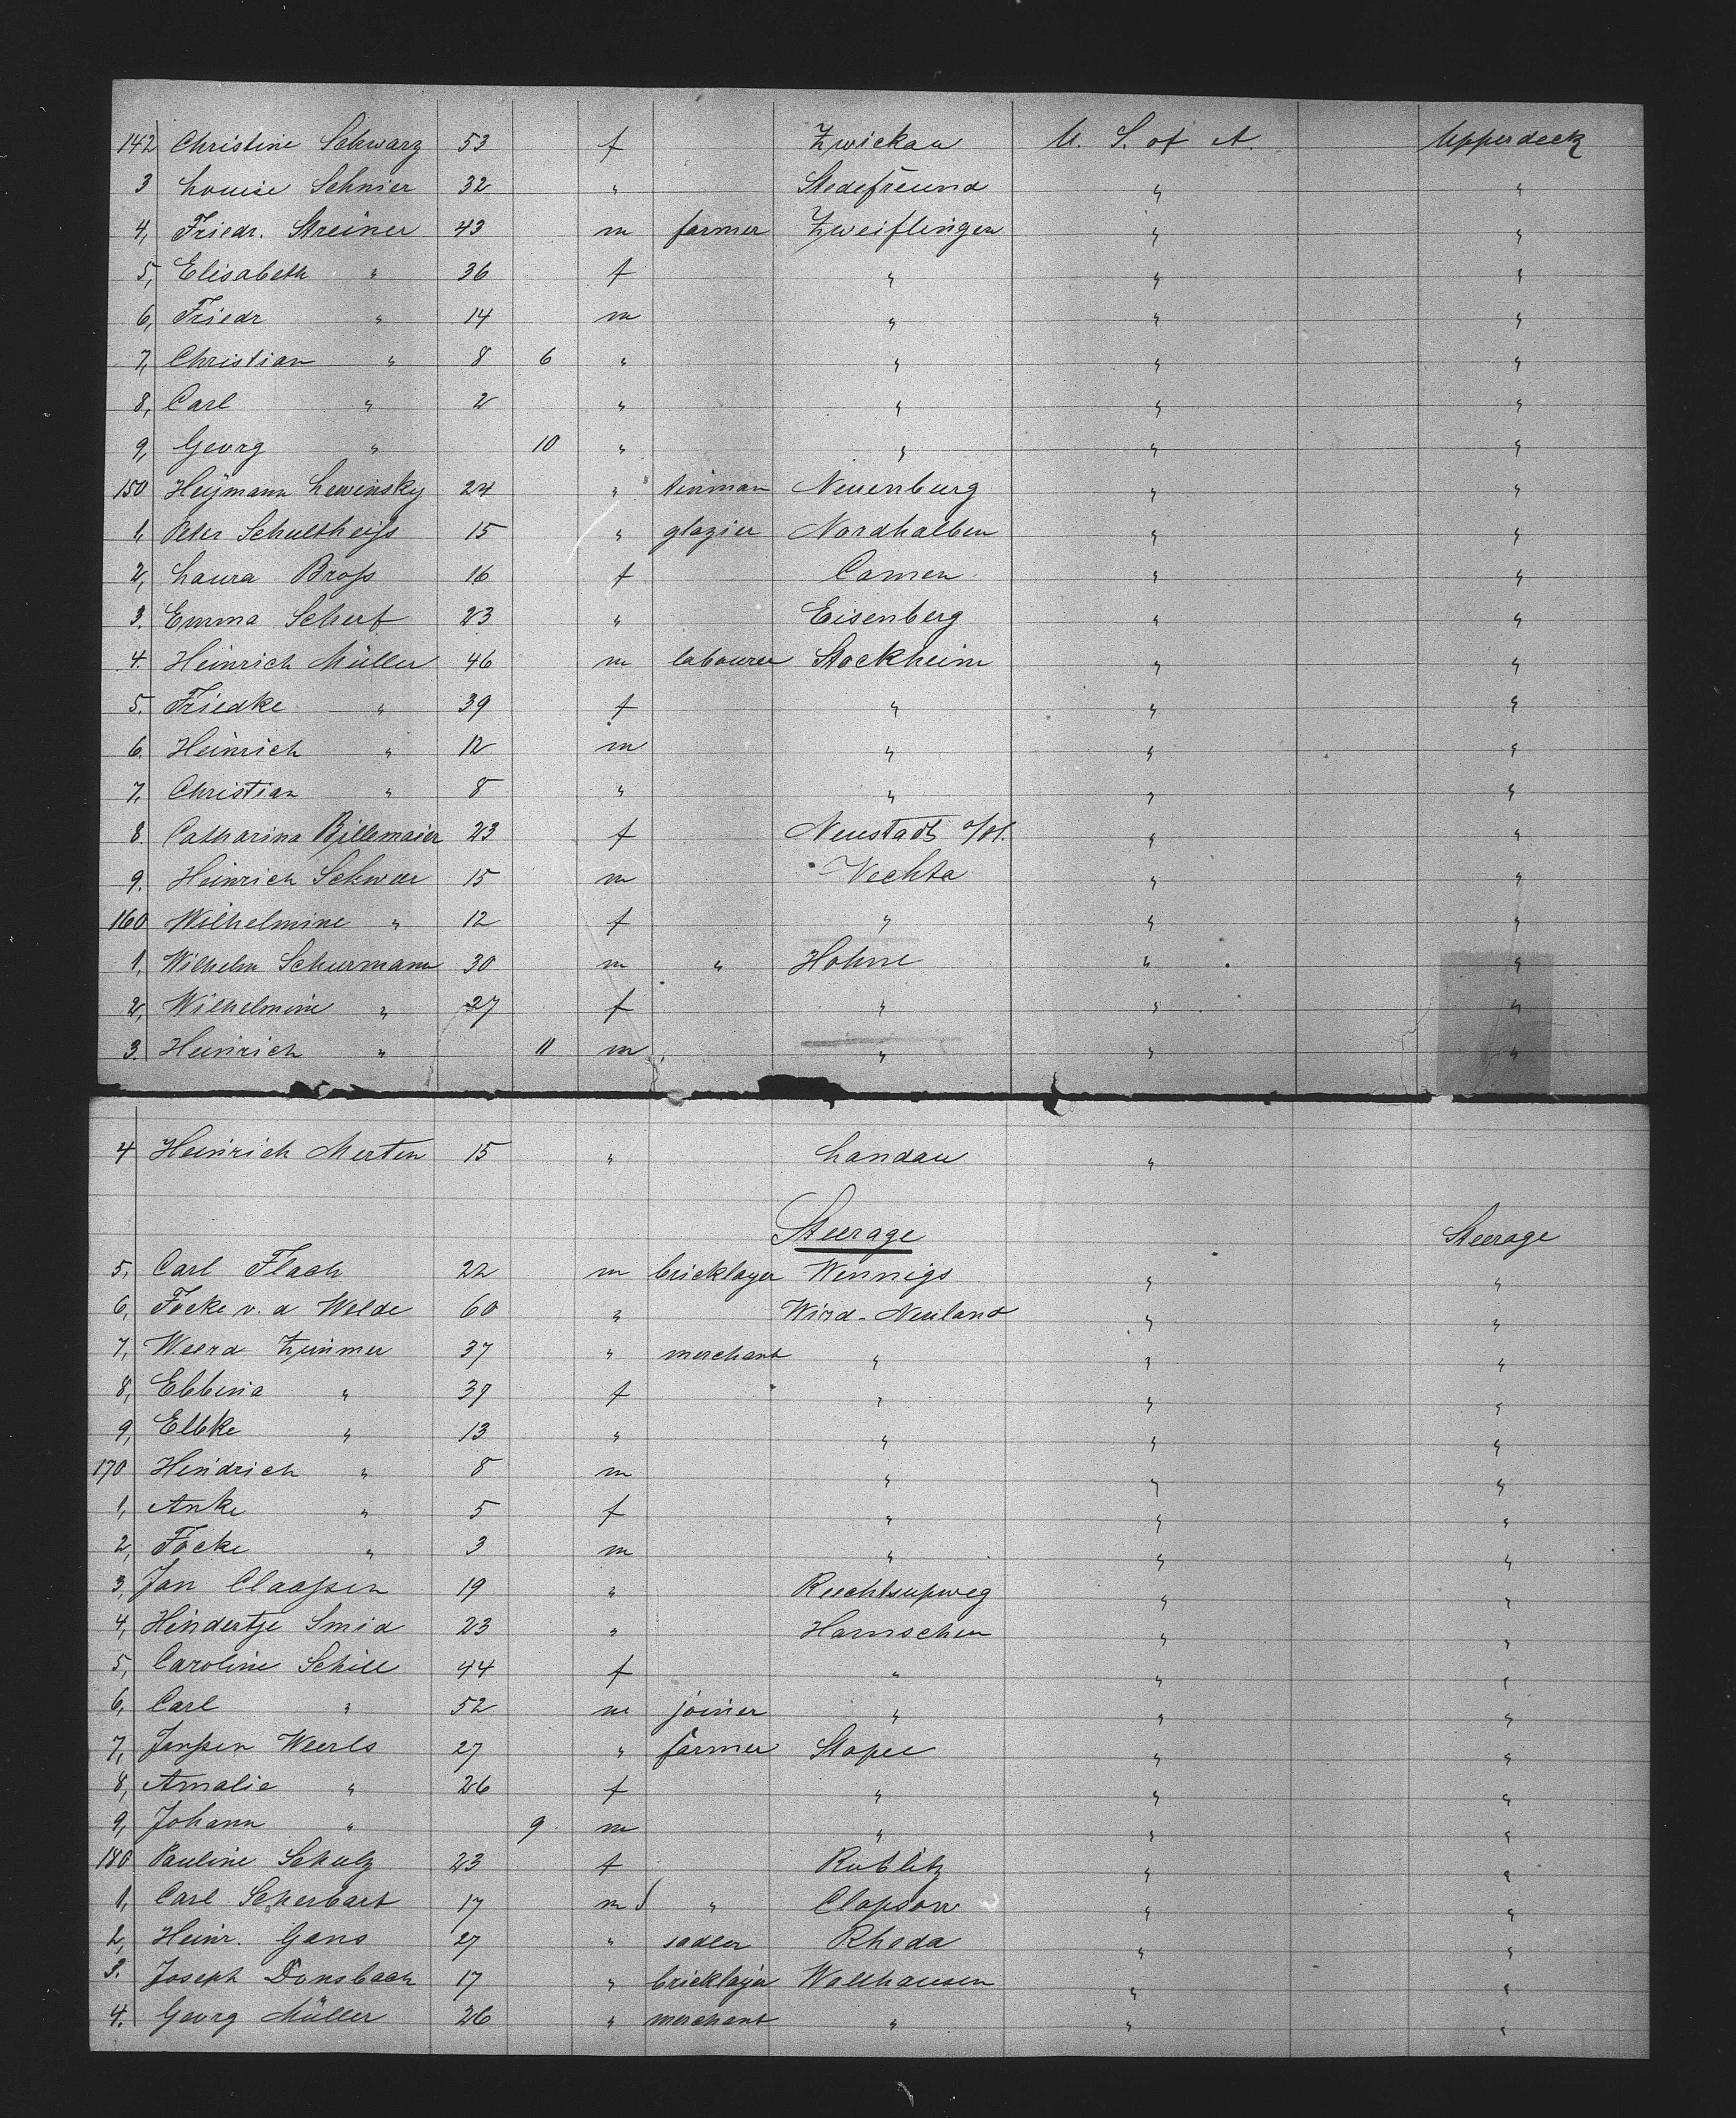 142 Christine Schwarz 53 f Zwickau U. S. of A. Upperdeck
3 Louise Schnier 32 " Stedefreund " "
4, Friedr. Streiner 43 m farmer Zweiflingen " "
5, Elisabeth " 36 f " " "
6, Friedr " 14 m " " "
7, Christian " 8 6 " " " "
8, Carl " 2 " " " "
9, Georg " 10 " " " "
150 Heymann Lewinsky 24 " tinman Neuenburg " "
1, Peter Schultheiss 15 " glazier Nordhalben " "
2, Laura Bross 16 f Camen " "
3. Emma Scherf 23 " Eisenberg " "
4. Heinrich Müller 46 m labourer Stockheim " "
5. Friedke " 39 f " " "
6. Heinrich " 12 m " " "
7, Christian " 8 " " " "
8. Catharina Billemaier 23 f Neustadt a/H. " "
9. Heinrich Schwer 15 m Vechta " "
160 Wilhelmine " 12 f " " "
1, Wilhelm Schurmann 30 m " Hohne " "
2, Wilhelmine " 27 f " " "
3. Heinrich " 11 m " " "
4 Heinrich Merten 15 " Landau "
Steerage Steerage
5, Carl Flach 22 m bricklayer Wennigs " "
6, Focke v. d Welde 60 " Wird-Neuland " "
7, Weerd Zimmer 37 " merchant " " "
8, Ebbena " 39 f " " "
9, Elbke " 13 " " " "
170 Hendrich " 8 m " " "
1, Anke " 5 f " " "
2, Focke " 3 m " " "
3, Jan Claassen 19 " Rechtsupweg " "
4, Hindertje Smid 23 " Hamschen " "
5, Caroline Schill 44 f " " "
6, Carl " 52 m joiner " " "
7, Janssen Weerts 27 " farmer Stapel " "
8, Amalie " 26 f " " "
9, Johann " 9 m " " "
180 Pauline Schulz 23 f Rublitz " "
1, Carl Scherbart 17 m " Clapsow " "
2, Heinr. Gans 27 " sadler Rheda " "
3. Joseph Donsbach 17 " bricklayer Wallhausen " "
4. Georg Müller 26 " merchant " " "